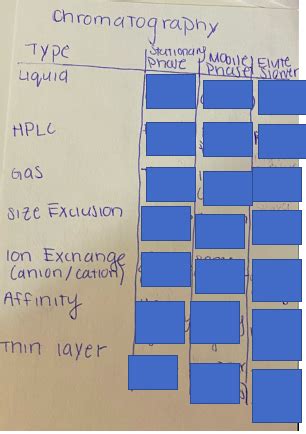 Chromatography
TYPE
Stationary Phase
Mobile Phase
Elute Slower
Liquid
HPLC
Gas
Size Exclusion
Ion Exchange
(anion/cation)
Affinity
Thin layer